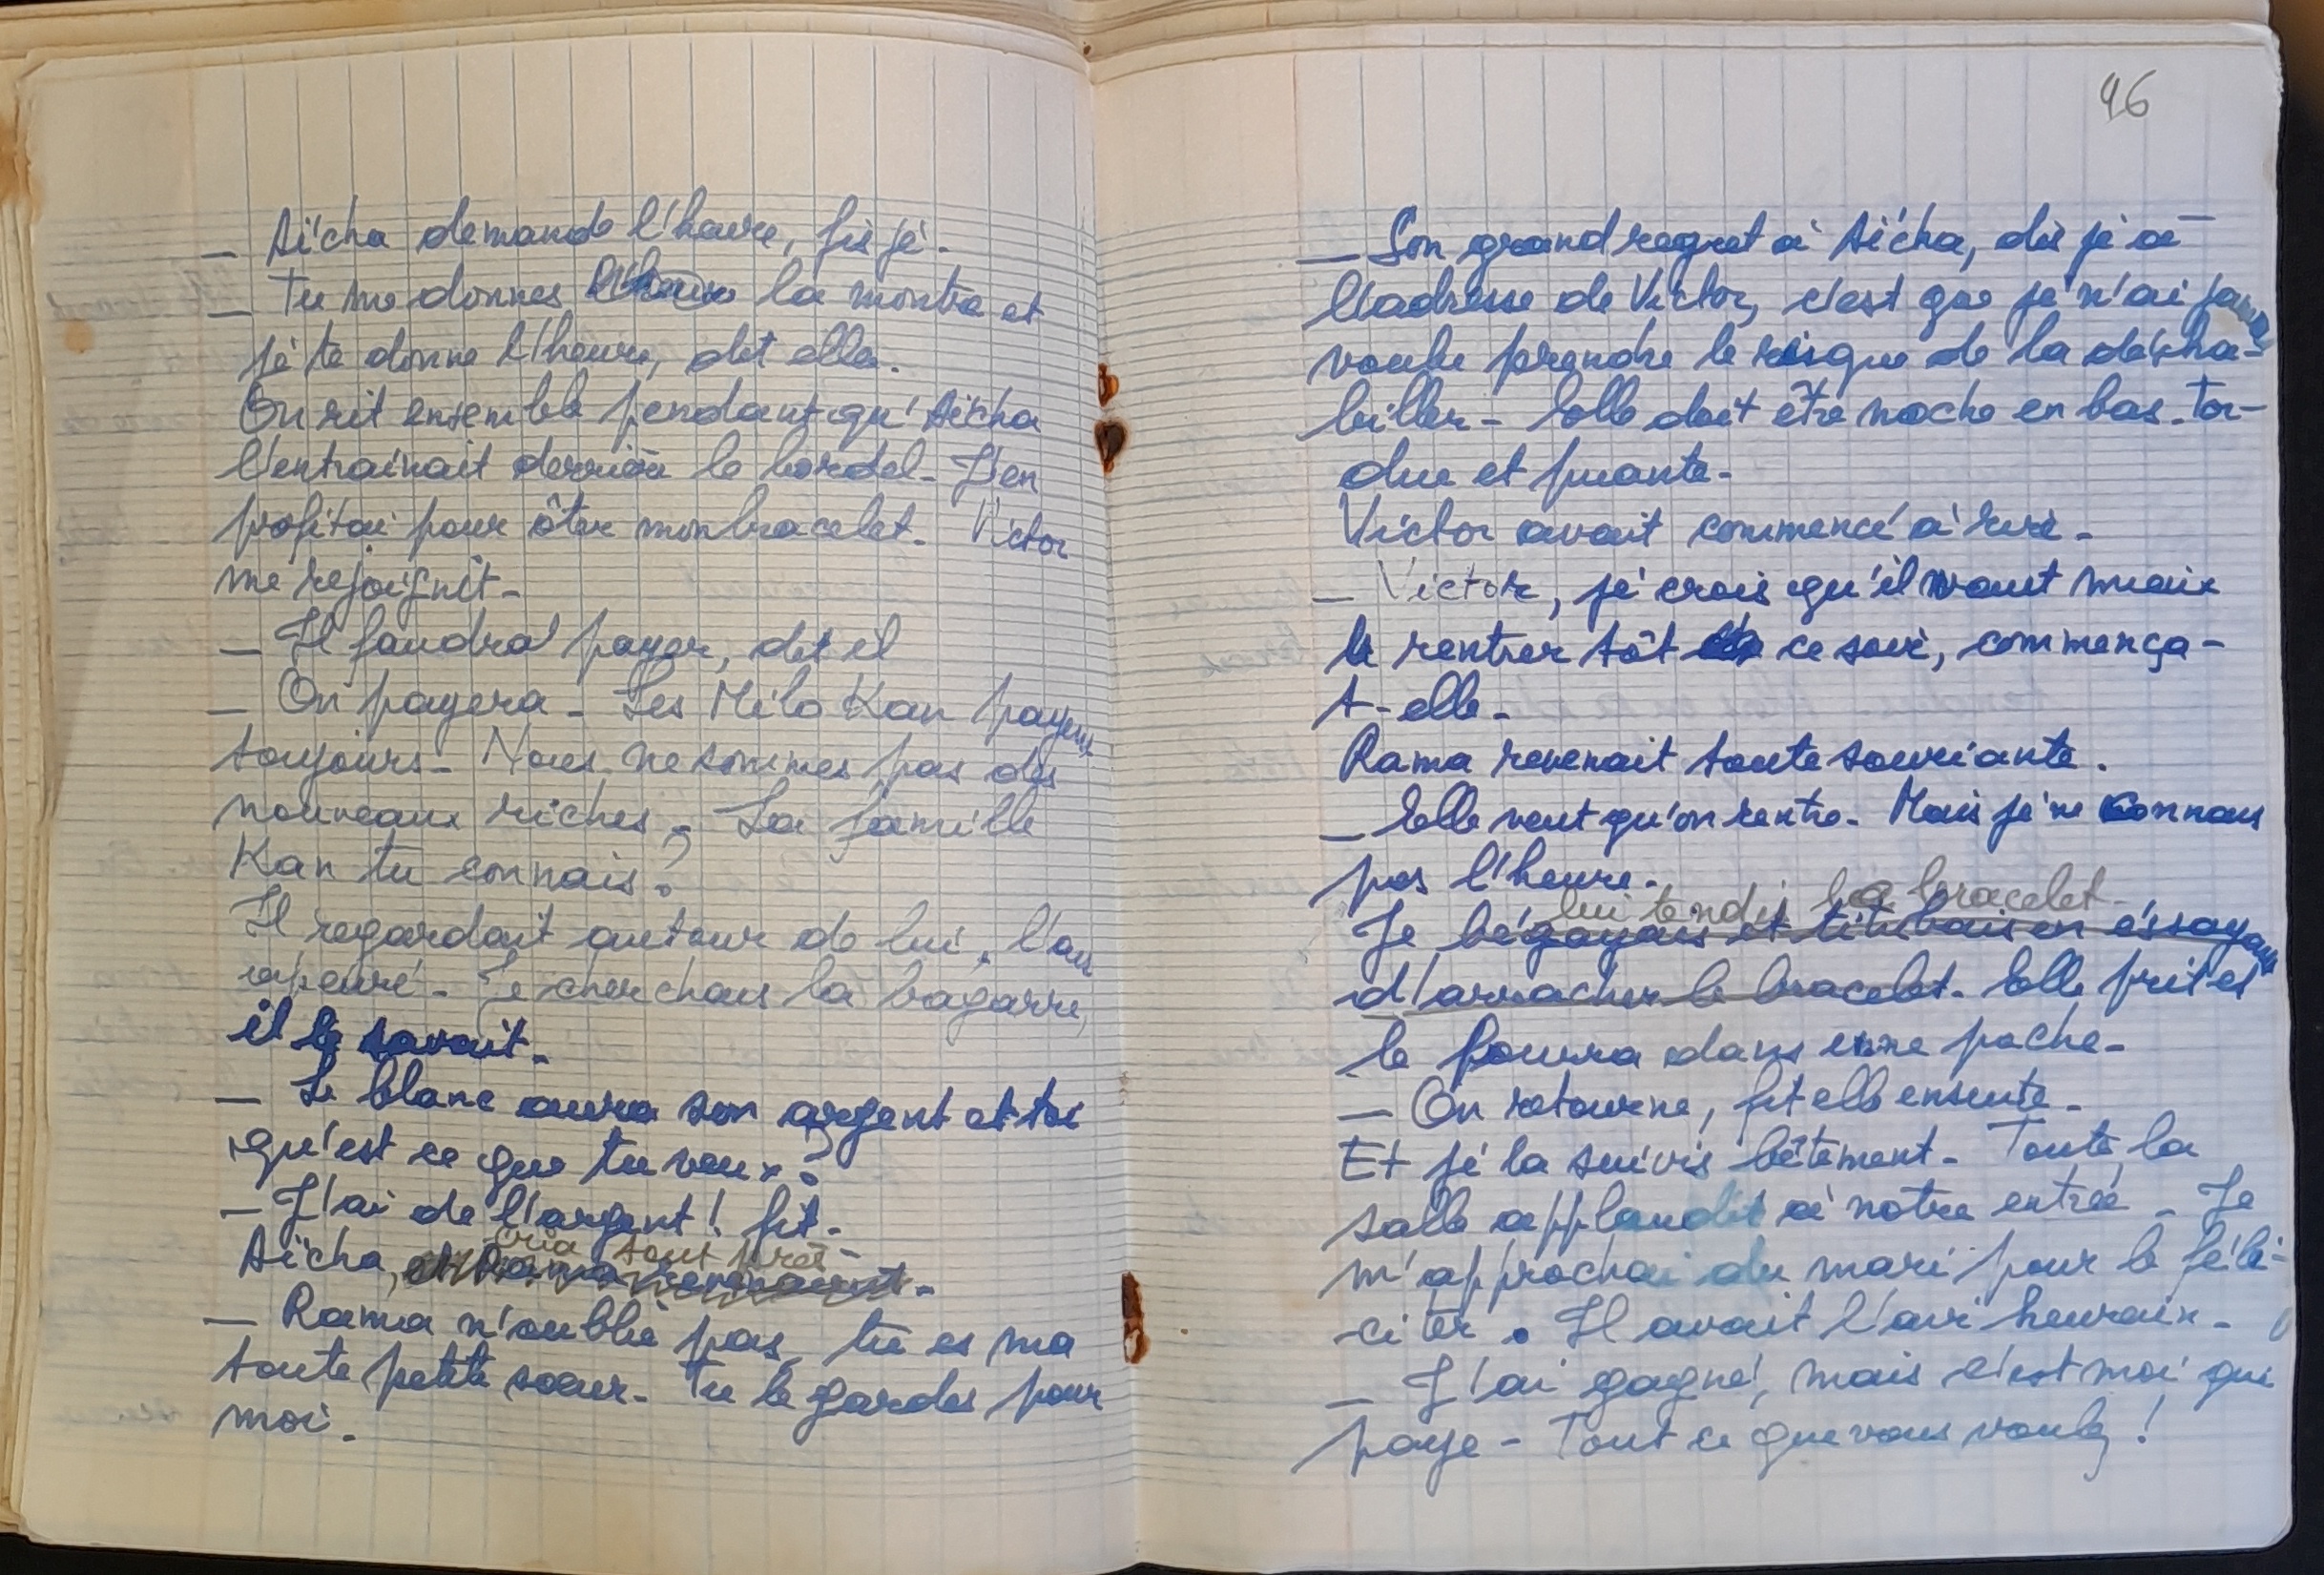 — Aïcha demande l'heure, fis je.
— Tu me donnes l'heure la montre et
je te donne l'heure, dit elle.
On rit ensemble pendant qu'Aïcha
l'entrainait derrière le bordel. J'en
profitai pour ôter mon bracelet. Victor
me rejoignit.
— Il faudra payer, dit il
— On payera. Les Milo Kan payent
toujours. Nous ne sommes pas des
nouveaux riches. La famille
Kan tu connais ?
Il regardait autour de lui, l'air
apeuré. Je cherchais la bagarre,
il le savait.
— Le blanc aura son argent et toi
qu'est ce que tu veux ?
— J'ai de l'argent ! fit.
cria tout près.
Aïcha, et Rama revenaient.
— Rama n'oublie pas, tu es ma
toute petite soeur. Tu le gardes pour
moi.
46
— Son grand regret à Aïcha, dis je à
l'adresse de Victor, c'est que je n'ai jamais
voulu prendre le risque de la désha-
biller. Elle doit être moche en bas. Tor-
due et puante.
Victor avait commencé à rire.
— Victor, je crois qu'il vaut mieux
le rentrer tôt ce soir, commença-
t-elle.
Rama revenait toute souriante.
— Elle veut qu'on rentre. Mais je ne connais
pas l'heure.
lui tendis le bracelet.
Je bégayais et titubais en éssayant
d'arracher le bracelet. Elle prit et
le fourra dans une poche.
— On retourne, fit elle ensuite.
Et je la suivis bêtement. Toute la
salle applaudit à notre entrée. Je
m'approchai du mari pour le féli-
citer. Il avait l'air heureux.
— J'ai gagné, mais c'est moi qui
paye. Tout ce que vous voulez !